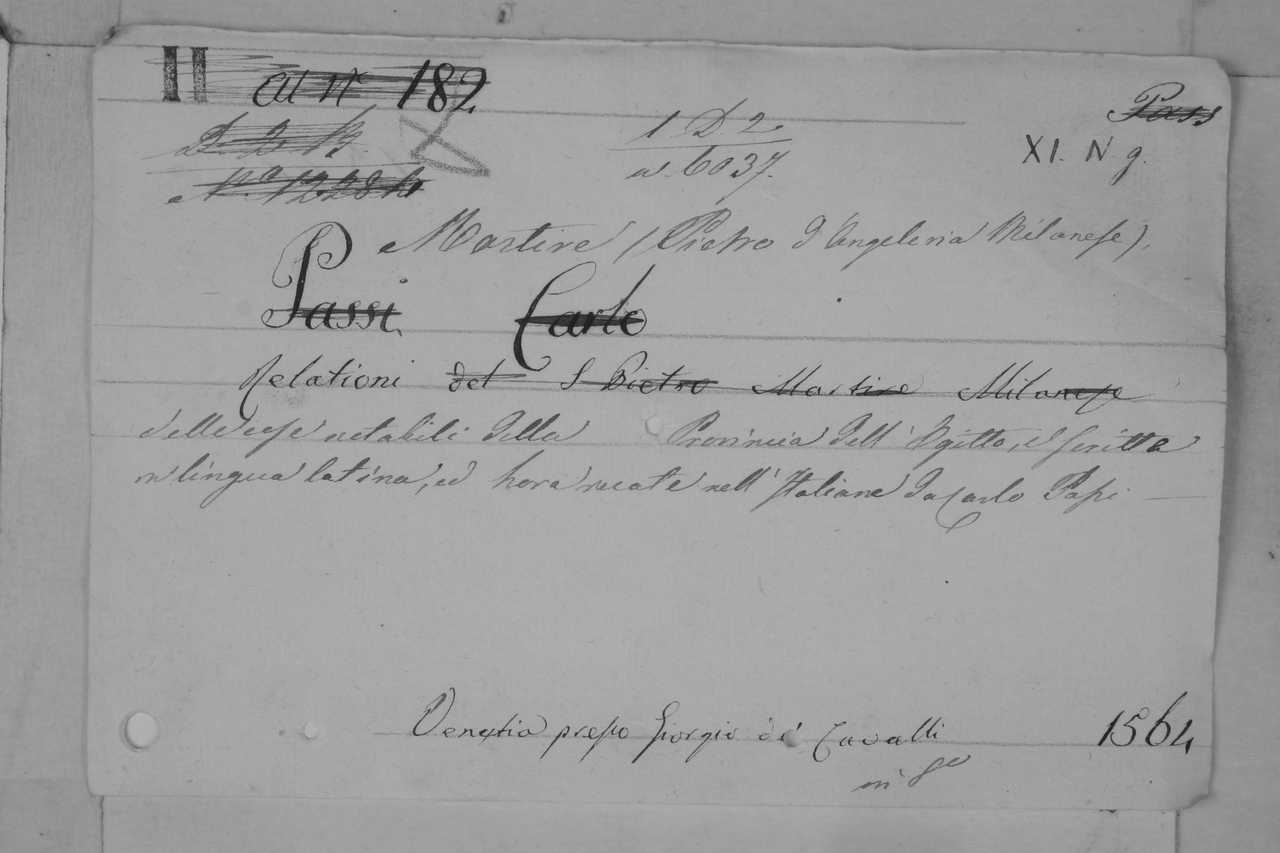 II al N° 182
Pass
D. 2. K.
1 D 2
XI. N g.
N° 12284
a. 6037.
Martire (Pietro d'Angleria Milanese).
Passi Carlo
Relationi del S Pietro Martire Milanese
delle cose notabili della Provincia dell' Egitto, scritte
in lingua latina, ed hora recate nell' Italiana da Carlo Passi
Venetia presso Giorgio de' Cavalli 1564
in 8°